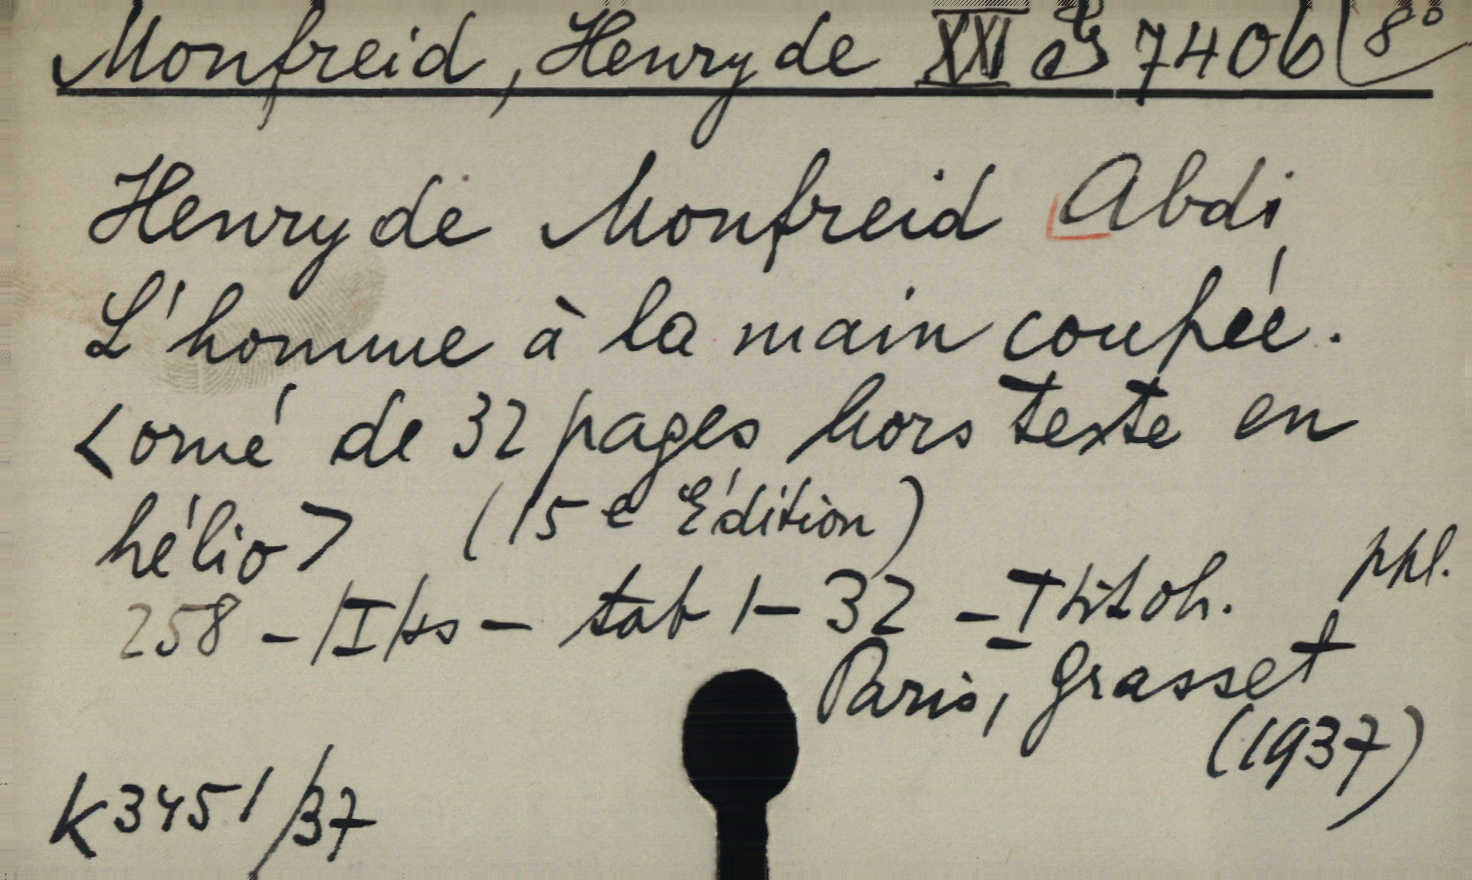 Monfreid, Henry de XXI 7406 8°
Henry de Monfreid Abdi
L'homme à la main coupée.
<orné de 32 pages hors texte en
hélio> (15e Édition)
ppl.
258 - /I/ - tab 1-32 -
Paris, Grasset
(1937)
K3451/37